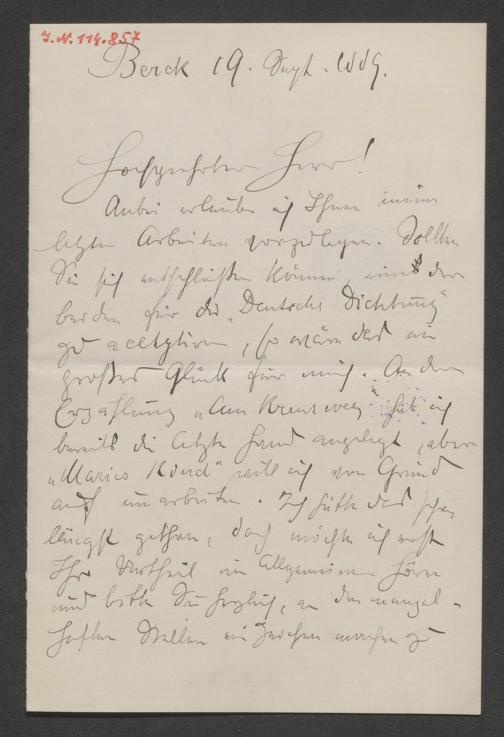 I.N. 114.857
Berck 19. Sept.
Hochgeehrter Herr!
Anbei erlaube ich Ihnen meine
letzten Arbeiten vorzulegen. Sollten
Sie sich entschließen können, eines der
beiden für die „Deutsche Dichtung“
zu acceptiren, so wäre das ein
großes Glück für mich. An der
Erzählung „Am Kreuzweg“ habe ich
bereits die letzte Hand angelegt, aber
„Marico Kind“ will ich von Grund
auf umarbeiten. Ich hätte das schon
längst gethan, doch möchte ich erst
Ihr Urtheil im Allgemeinen hören
und bitte Sie herzlich, an den mangel-
haften Stellen ein Zeichen machen zu